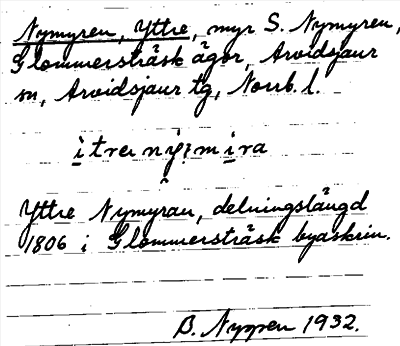 Nymyren, Yttre, myr S. Nymyren,
Glommersträsk ägor, Arvidsjaur
sn, Arvidsjaur tg, Norrb. l.
Yttre Nymyran, delningslängd
1806 i Glommersträsk byaskrin.
B. Nyppen 1932.